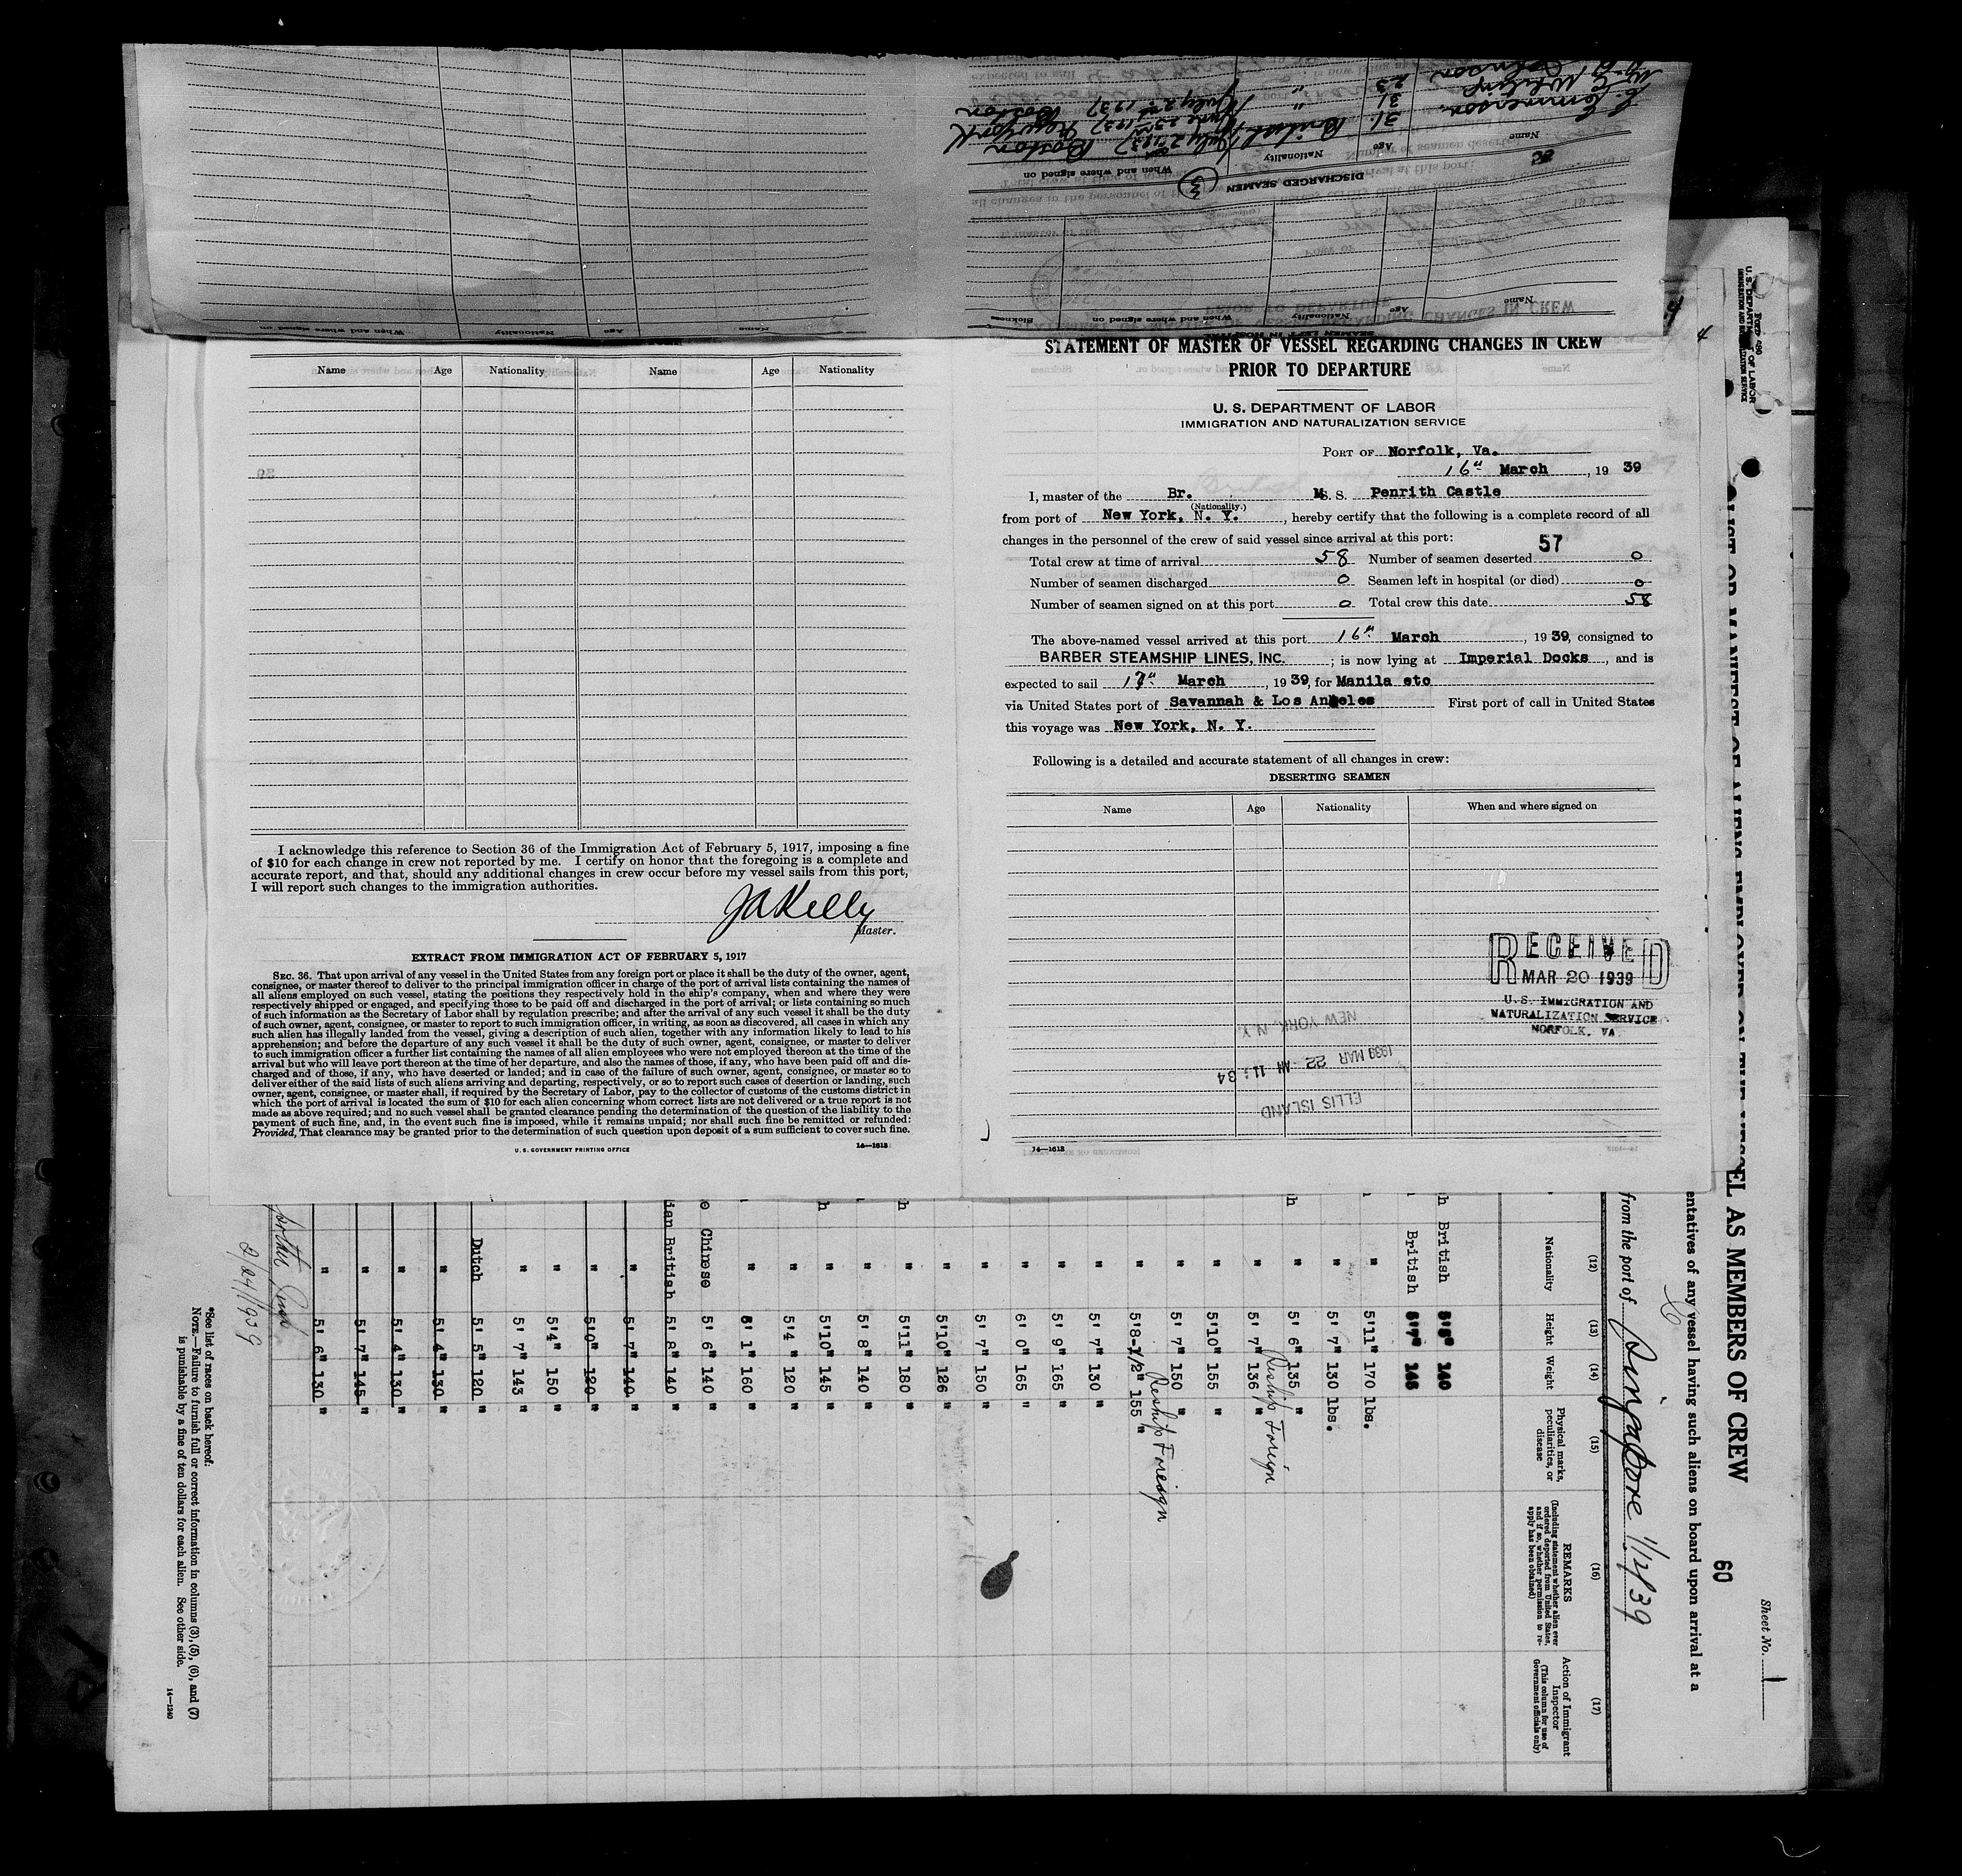 DISCHARGED SEAMEN
Name Age Nationality When and where signed on
31 British July 2nd 1937 Boston
31 " June 23rd 1937 New York
23 " July 2nd 1937 Boston
Johnson
Name Age Nationality When and where signed on Sickness
Name Age Nationality When and where signed on
Name Age Nationality Name Age Nationality
I acknowledge this reference to Section 36 of the Immigration Act of February 5, 1917, imposing a fine
of $10 for each change in crew not reported by me. I certify on honor that the foregoing is a complete and
accurate report, and that, should any additional changes in crew occur before my vessel sails from this port,
I will report such changes to the immigration authorities.
JA Kelly
Master.
EXTRACT FROM IMMIGRATION ACT OF FEBRUARY 5, 1917
SEC. 36. That upon arrival of any vessel in the United States from any foreign port or place it shall be the duty of the owner, agent,
consignee, or master thereof to deliver to the principal immigration officer in charge of the port of arrival lists containing the names of
all aliens employed on such vessel, stating the positions they respectively hold in the ship's company, when and where they were
respectively shipped or engaged, and specifying those to be paid off and discharged in the port of arrival; or lists containing so much
of such information as the Secretary of Labor shall by regulation prescribe; and after the arrival of any such vessel it shall be the duty
of such owner, agent, consignee, or master to report to such immigration officer, in writing, as soon as discovered, all cases in which any
such alien has illegally landed from the vessel, giving a description of such alien, together with any information likely to lead to his
apprehension; and before the departure of any such vessel it shall be the duty of such owner, agent, consignee, or master to deliver
to such immigration officer a further list containing the names of all alien employees who were not employed thereon at the time of the
arrival but who will leave port thereon at the time of her departure, and also the names of those, if any, who have been paid off and dis-
charged and of those, if any, who have deserted or landed; and in case of the failure of such owner, agent, consignee, or master so to
deliver either of the said lists of such aliens arriving and departing, respectively, or so to report such cases of desertion or landing, such
owner, agent, consignee, or master shall, if required by the Secretary of Labor, pay to the collector of customs of the customs district in
which the port of arrival is located the sum of $10 for each alien concerning whom correct lists are not delivered or a true report is not
made as above required; and no such vessel shall be granted clearance pending the determination of the question of the liability to the
payment of such fine, and, in the event such fine is imposed, while it remains unpaid; nor shall such fine be remitted or refunded:
Provided, That clearance may be granted prior to the determination of such question upon deposit of a sum sufficient to cover such fine.
U. S. GOVERNMENT PRINTING OFFICE 14—1613
STATEMENT OF MASTER OF VESSEL REGARDING CHANGES IN CREW
PRIOR TO DEPARTURE
U. S. DEPARTMENT OF LABOR
IMMIGRATION AND NATURALIZATION SERVICE
PORT OF Norfolk, Va.
16th March, 19 39
I, master of the Br. M.S. S. Penrith Castle
(Nationality.)
from port of New York, N. Y., hereby certify that the following is a complete record of all
changes in the personnel of the crew of said vessel since arrival at this port: 57
Total crew at time of arrival 58 Number of seamen deserted 0
Number of seamen discharged 0 Seamen left in hospital (or died) 0
Number of seamen signed on at this port 0 Total crew this date 58
The above-named vessel arrived at this port 16th March, 19 39, consigned to
BARBER STEAMSHIP LINES, INC.; is now lying at Imperial Docks, and is
expected to sail 17th March, 19 39, for Manila etc
via United States port of Savannah & Los Angeles First port of call in United States
this voyage was New York, N. Y.
Following is a detailed and accurate statement of all changes in crew:
DESERTING SEAMEN
Name Age Nationality When and where signed on
RECEIVED
MAR 20 1939
U.S. IMMIGRATION AND
NATURALIZATION SERVICE
NORFOLK, VA
NEW YORK, N.Y.
1939 MAR 22 AM 11:34
ELLIS ISLAND
14—1613
Sheet No. 1
60
EL AS MEMBERS OF CREW
entatives of any vessel having such aliens on board upon arrival at a
from the port of Singapore 1/12/39
(12) (13) (14) (15) (16) (17)
Nationality Height Weight Physical marks, peculiarities, or disease
REMARKS
(Including statement whether alien ever
ordered deported from United States,
and if so, whether permission to re-
apply has been obtained)
Action of Immigrant
Inspector
(This column for use of
Government officials only)
h British 5'8" 140
British 5'7" 145
" 5'11" 170 lbs.
" 5' 7" 130 lbs.
h " 5' 6" 135 "
" 5' 7" 136 " Reship Foreign
" 5'10" 155 "
" 5' 7" 150 "
" 5'8-1/2" 155 " Reship Foreign
" 5' 7" 130 "
" 5' 9" 165 "
" 6' 0" 165 "
" 5' 7" 150 "
" 5'10" 126 "
h " 5'11" 180 "
" 5' 8" 140 "
h " 5'10" 145 "
" 5'4 " 120 "
" 6' 1" 160 "
o Chinese 5' 6" 140 "
ian British 5' 8" 140 "
" 5' 7" 140 "
" 5'0" 120 "
" 5'4" 150 "
" 5' 7" 143 "
Dutch 5' 5" 120 "
" 5' 4" 130 "
" 5' 4" 130 "
" 5' 7" 145 "
" 5' 6" 130 "
2/24/1939
*See list of races on back hereof:
NOTE.—Failure to furnish full or correct information in columns (3), (5), (6), and (7)
is punishable by a fine of ten dollars for each alien. See other side.
14—1240